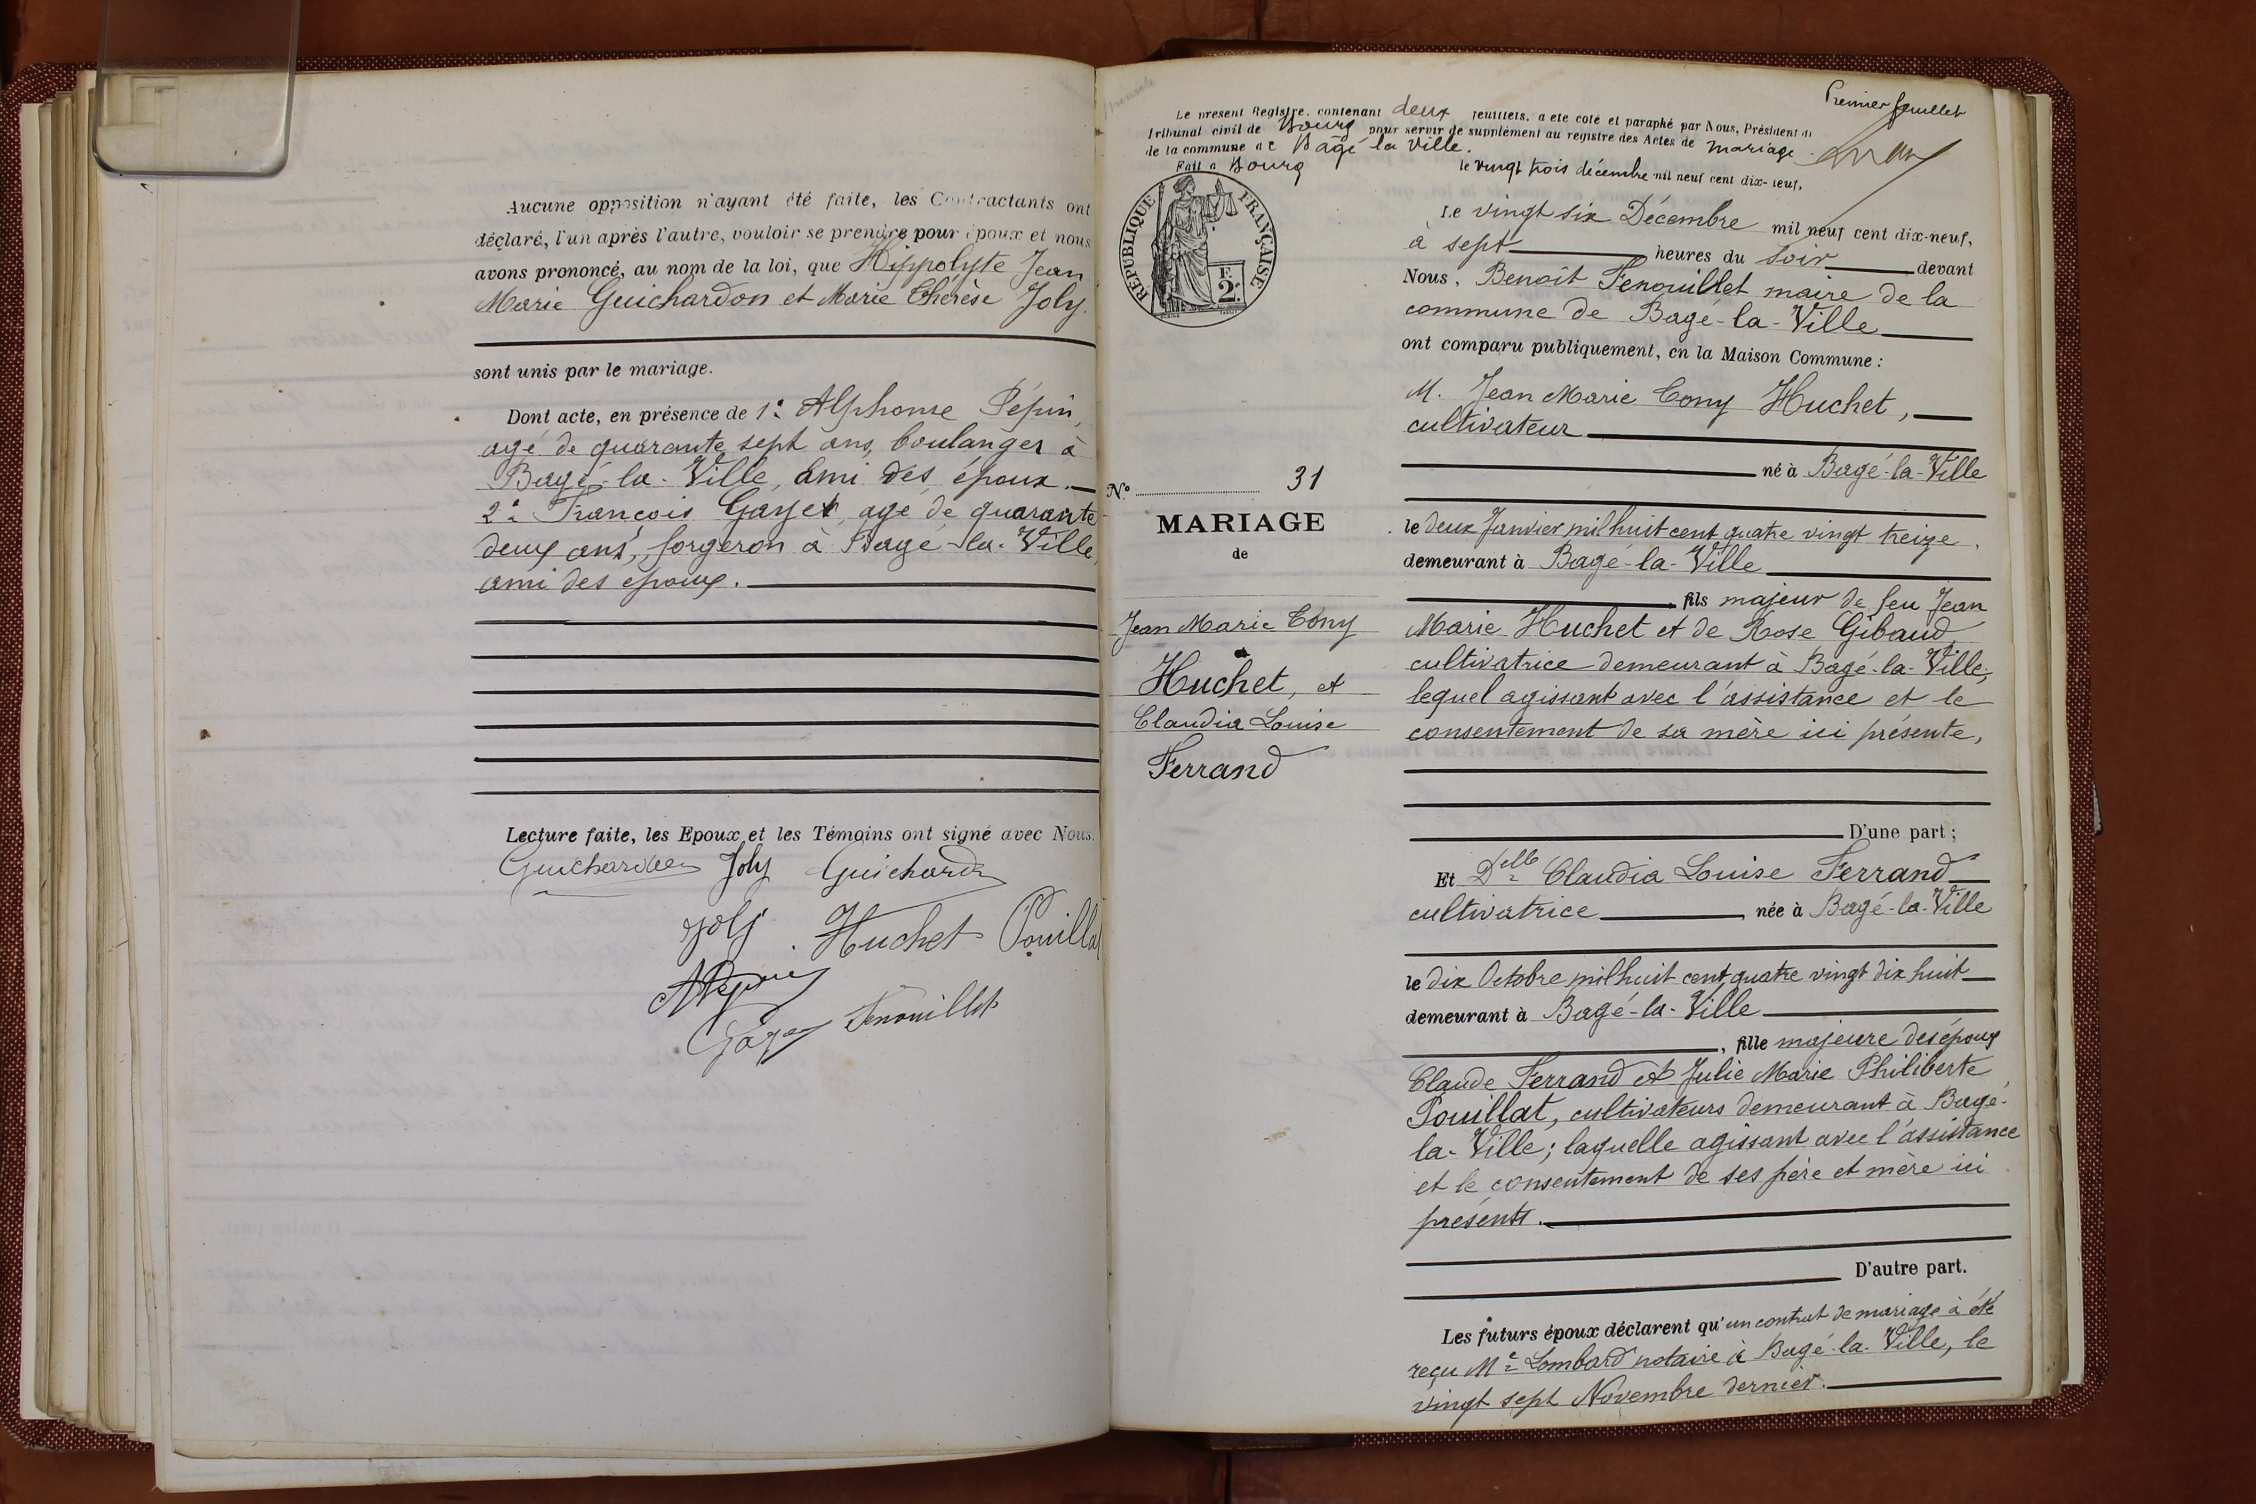 Aucune opposition n'ayant été faite, les Contractants ont
déclaré, l'un après l'autre, vouloir se prendre pour époux et nous
avons prononcé, au nom de la loi, que Hippolyte Jean
Marie Guichardon et Marie Thérèse Joly.
sont unis par le mariage.
Dont acte, en présence de 1° Alphonse Pépin,
agé de quarante sept ans, boulanger à
Bagé-la-Ville, ami des époux.
2° François Gayet, agé de quarante
deux ans, forgeron à Bagé-la-Ville,
ami des époux.
Lecture faite, les Epoux et les Témoins ont signé avec Nous.
Guichardon Joly Guichardon
Joly Huchet Pouillat
APépin
Gayet Fenouillet
Premier feuillet
Le présent Registre, contenant deux feuillets, a été coté et paraphé par Nous, Président du
Tribunal civil de Bourg pour servir de supplément au registre des Actes de mariage
de la commune de Bagé la Ville.
Fait à Bourg le vingt trois décembre mil neuf cent dix-neuf,
RÉPUBLIQUE FRANÇAISE
F.
2.
Le vingt six Décembre mil neuf cent dix-neuf,
à sept heures du soir devant
Nous, Benoît Fenouillet maire de la
commune de Bagé-la-Ville
ont comparu publiquement, en la Maison Commune :
M. Jean Marie Tony Huchet,
cultivateur
né à Bagé-la-Ville
le deux Janvier mil huit cent quatre vingt treize,
demeurant à Bagé-la-Ville
fils majeur de feu Jean
Marie Huchet et de Rose Gibaud
cultivatrice demeurant à Bagé-la-Ville;
lequel agissant avec l'assistance et le
consentement de sa mère ici présente,
D'une part ;
N° 31
MARIAGE
de
Jean Marie Tony
Huchet, et
Claudia Louise
Ferrand
Et Delle Claudia Louise Ferrand
cultivatrice, née à Bagé-la-Ville
le dix Octobre mil huit cent quatre vingt dix huit
demeurant à Bagé-la-Ville
, fille majeure des époux
Claude Ferrand et Julie Marie Philiberte
Pouillat, cultivateurs demeurant à Bagé-
la-Ville; laquelle agissant avec l'assistance
et le consentement de ses père et mère ici
présents.
D'autre part.
Les futurs époux déclarent qu'un contrat de mariage à été
reçu Me Lombard notaire à Bagé-la-Ville, le
vingt sept Novembre dernier.